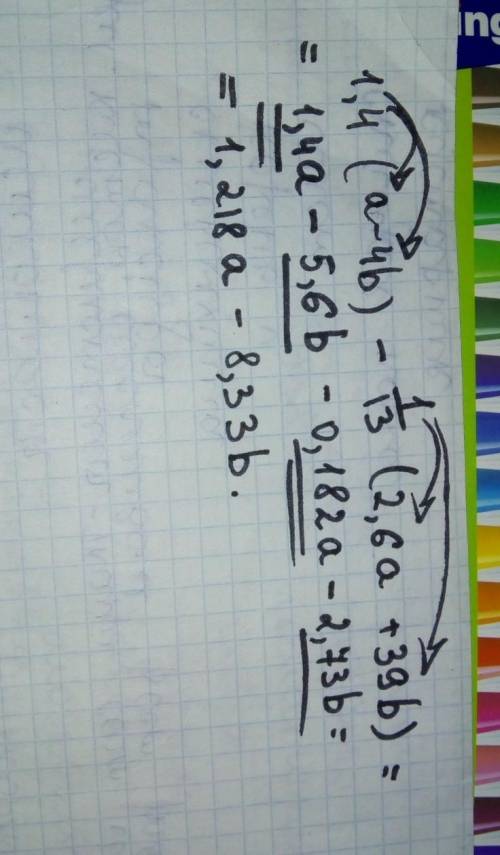 1,4 (a-4b) - 1/13 (2,6a +39b) =
= 1,4a - 5,6b - 0,182a - 2,73b =
= 1,218a - 8,33b.